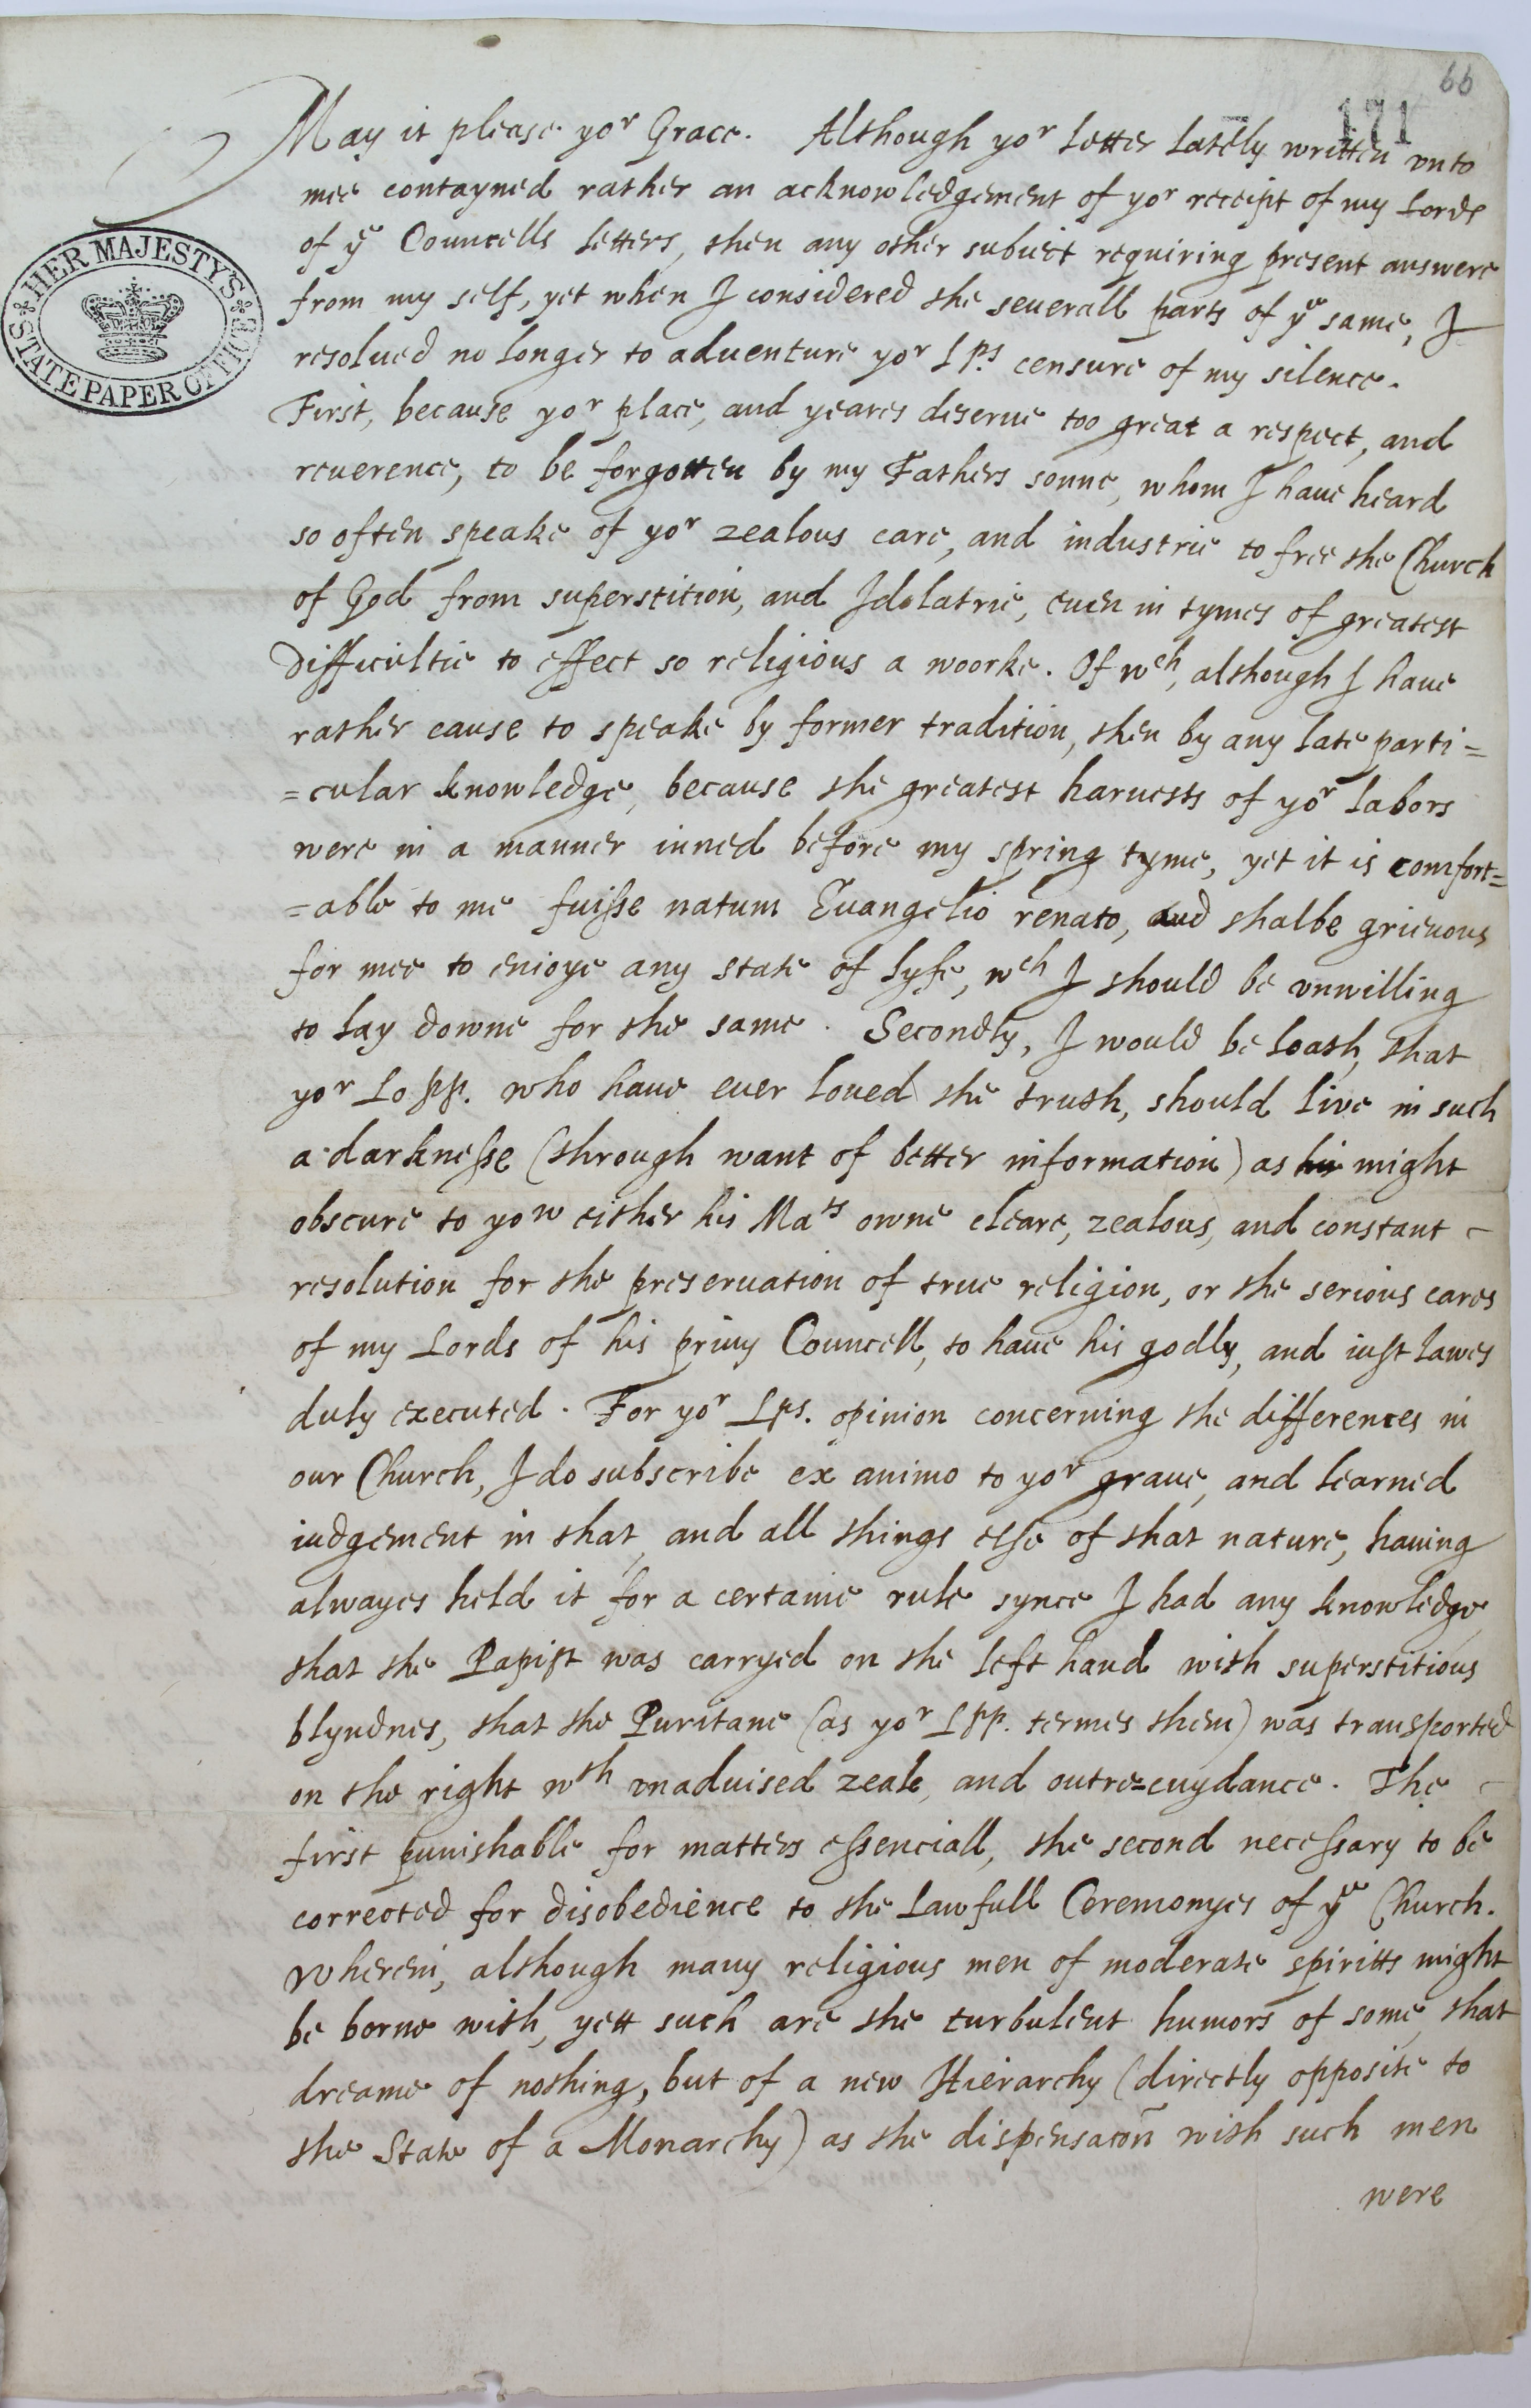 66
171
May it please yor Grace. Although yor letter lately written vnto
mee contayned rather an acknowledgement of yor receipt of my Lords
of ye Councells letters, then any other subiect requiring present answere
from my self, yet when I considered the seuerall parts of ye same, I
resolued no longer to aduenture yor Lps censure of my silence.
First, because yor place, and yeares deserue too great a respect, and
reuerence, to be forgotten by my Fathers sonne, whom I haue heard
so often speake of yor zealous care, and industrie to free the Church
of God from superstition, and Idolatrie, euen in tymes of greatest
difficultie to effect so religious a woorke. Of wch, although I haue
rather cause to speake by former tradition, then by any late parti=
=cular knowledge, because the greatest haruests of yor labors
were in a manner inned before my spring tyme, yet it is comfort=
=able to me fuisse natum Euangelio renato, and shalbe grieuous
for mee to enioye any state of lyfe, wch I should be vnwilling
to lay downe for the same. Secondly, I would be loath, that
yor Lopp. who haue euer loued the truth, should live in such
a darknesse (through want of better information) as might
obscure to yow either his Mats owne cleare, zealous, and constant
resolution for the preseruation of true religion, or the serious cares
of my Lords of his priuy Councell, to haue his godly, and iust lawes
duly executed. For yor Lps. opinion concerning the differences in
our Church, I do subscribe ex animo to yor graue, and learned
iudgement in that, and all things else of that nature, hauing
alwayes held it for a certaine rule synce I had any knowledge
that the Papist was carryed on the left hand with superstitious
blyndnes, that the Puritane (as yor Lpp. termes them) was transported
on the right wth vnaduised zeale, and outre=cuydance. The
first punishable for matters essenciall, the second necessary to be
corrected for disobedience to the lawfull Ceremonyes of ye Church.
Wherein, although many religious men of moderate spiritts might
be borne with, yett such are the turbulent humors of some, that
dreame of nothing, but of a new Hierarchy (directly opposite to
the State of a Monarchy) as the dispensacon with such men
were
HER MAJESTY'S
STATE PAPER OFFICE